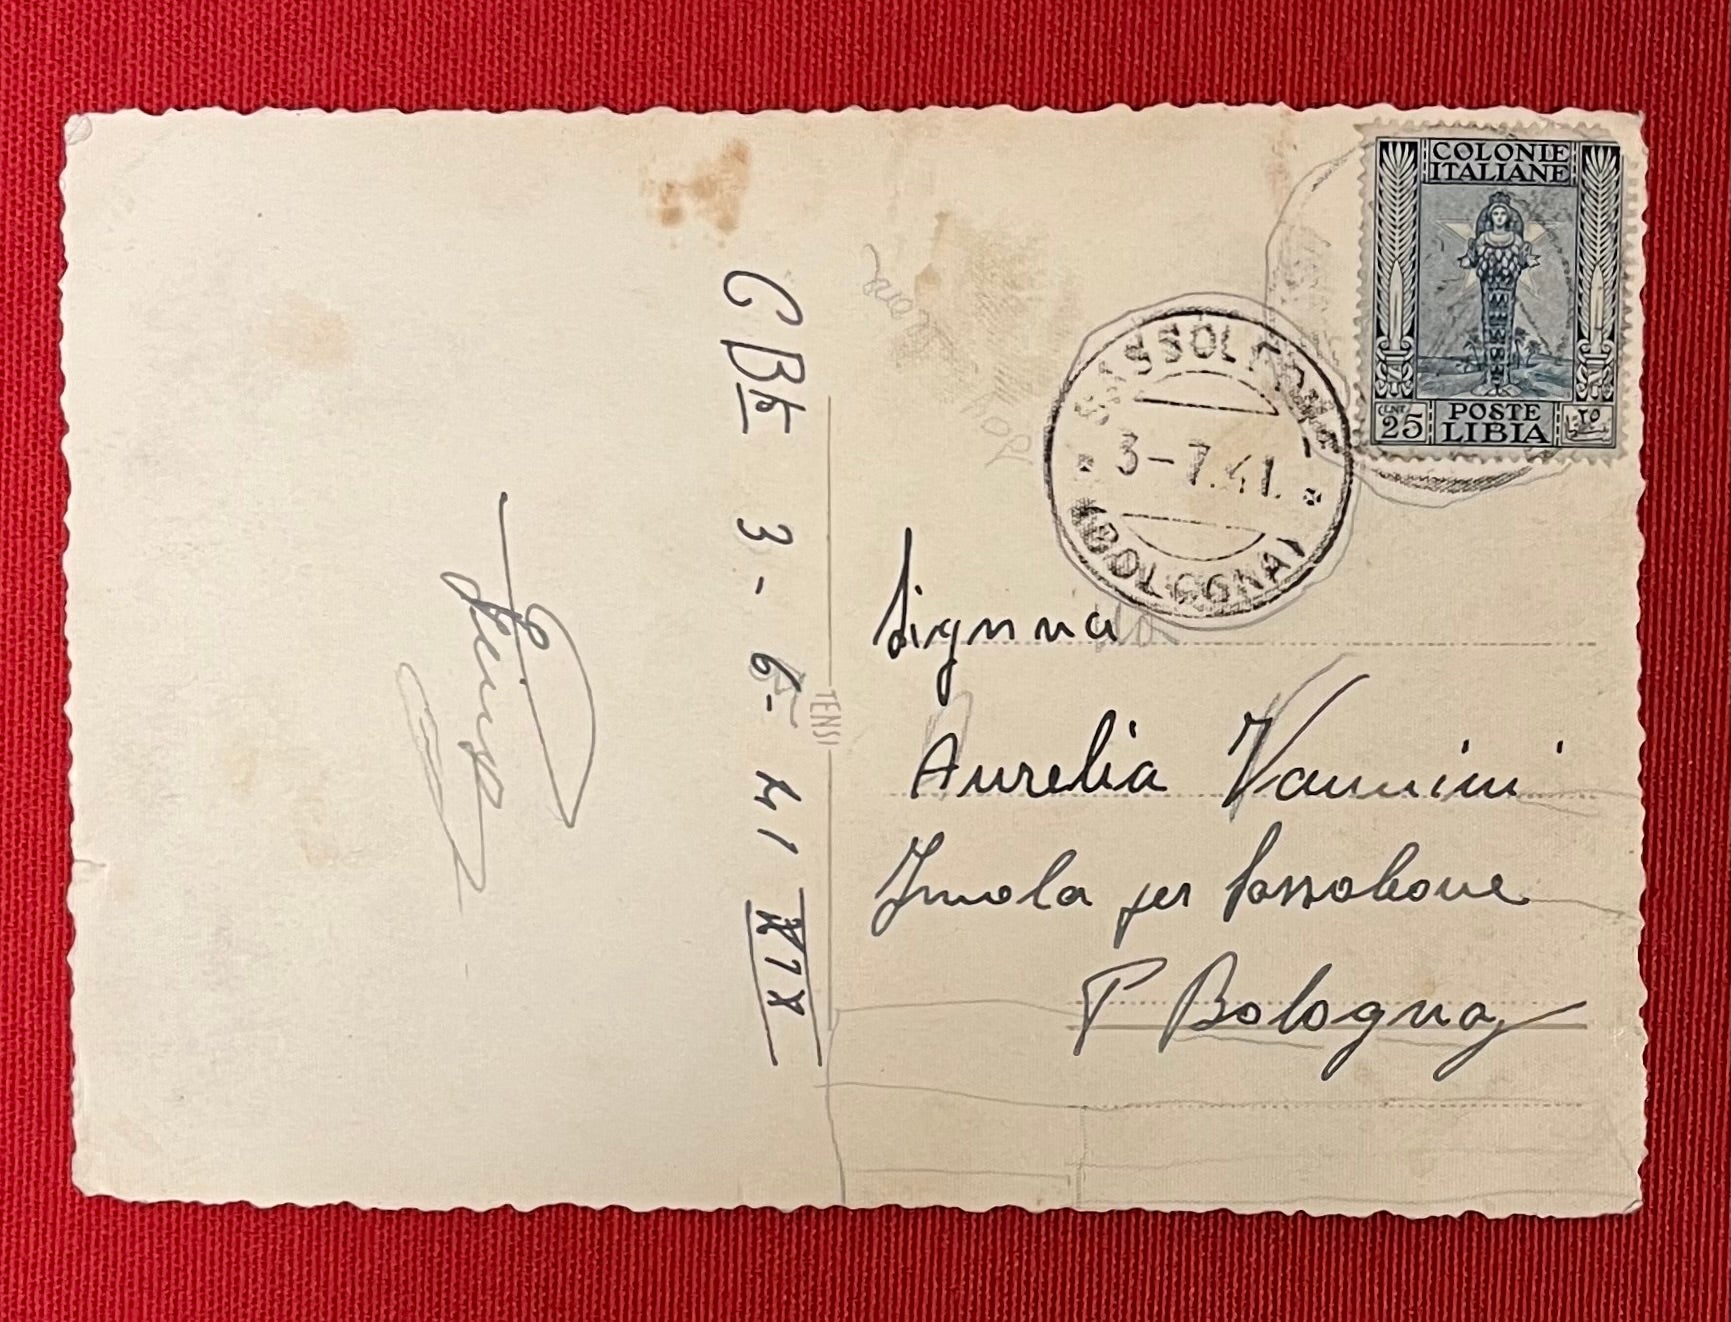 COLONIE
ITALIANE
CENT
25
POSTE
LIBIA
٢٥
SASSOLEONE
3-7.41.
(BOLOGNA)
3-6-41 XIX
TENSI
Signora
Aurelia Vannini
Imola per Sassoleone
P Bologna